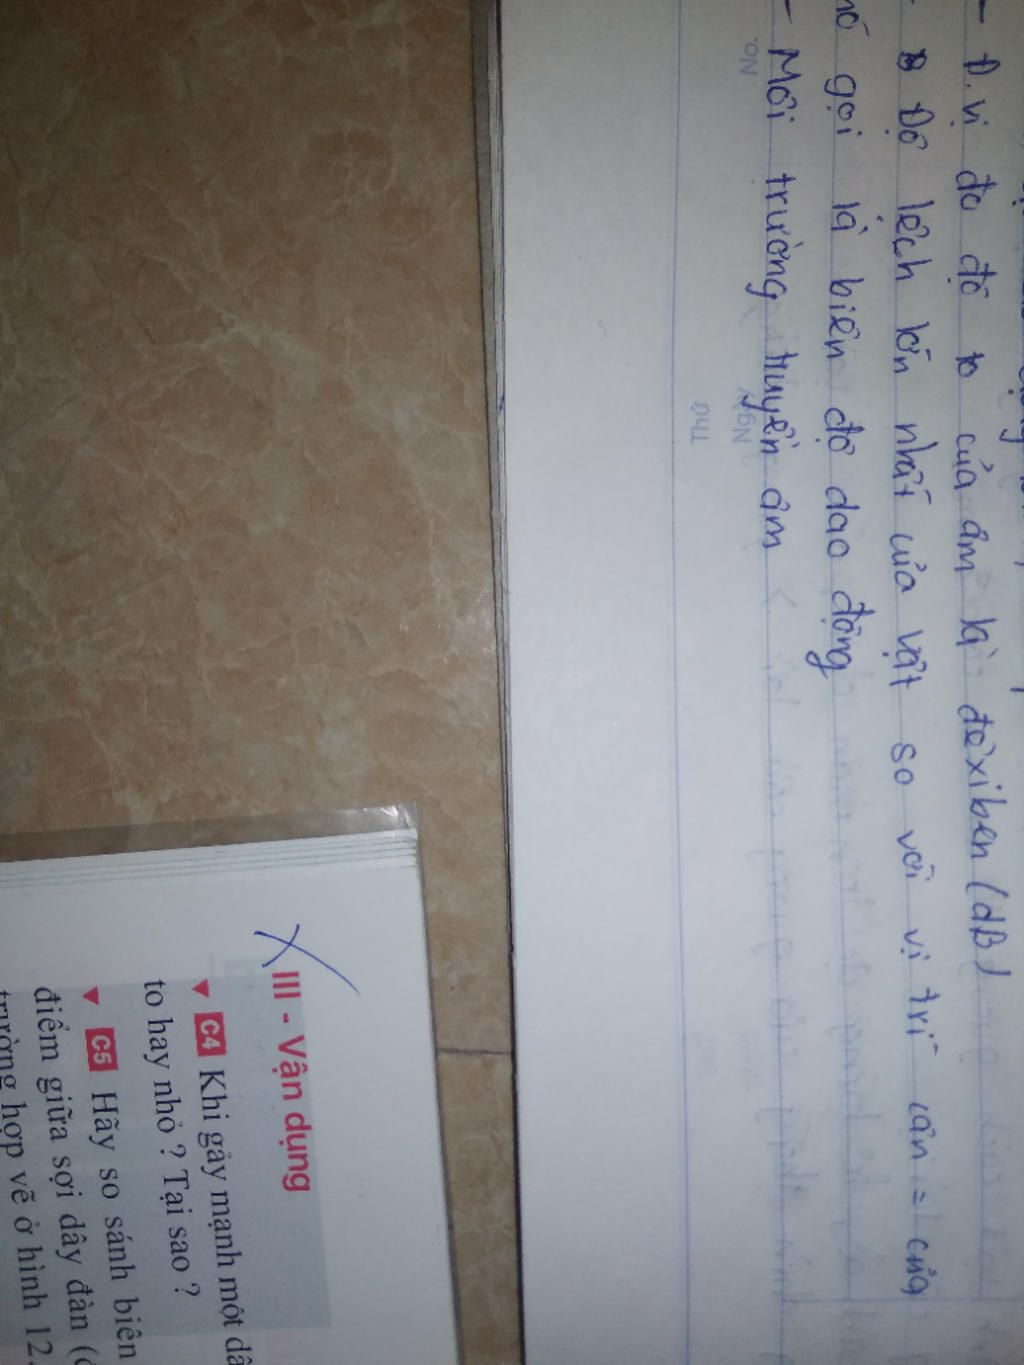 - Đ.vị đo độ to của âm là đêxiben (dB)
- Độ lệch lớn nhất của vật so với vị trí cân = của
nó gọi là biên độ dao động
- Môi trường truyền âm <
III - Vận dụng
C4 Khi gảy mạnh một dâ
to hay nhỏ ? Tại sao ?
C5 Hãy so sánh biên
điểm giữa sợi dây đàn (
trường hợp vẽ ở hình 12.